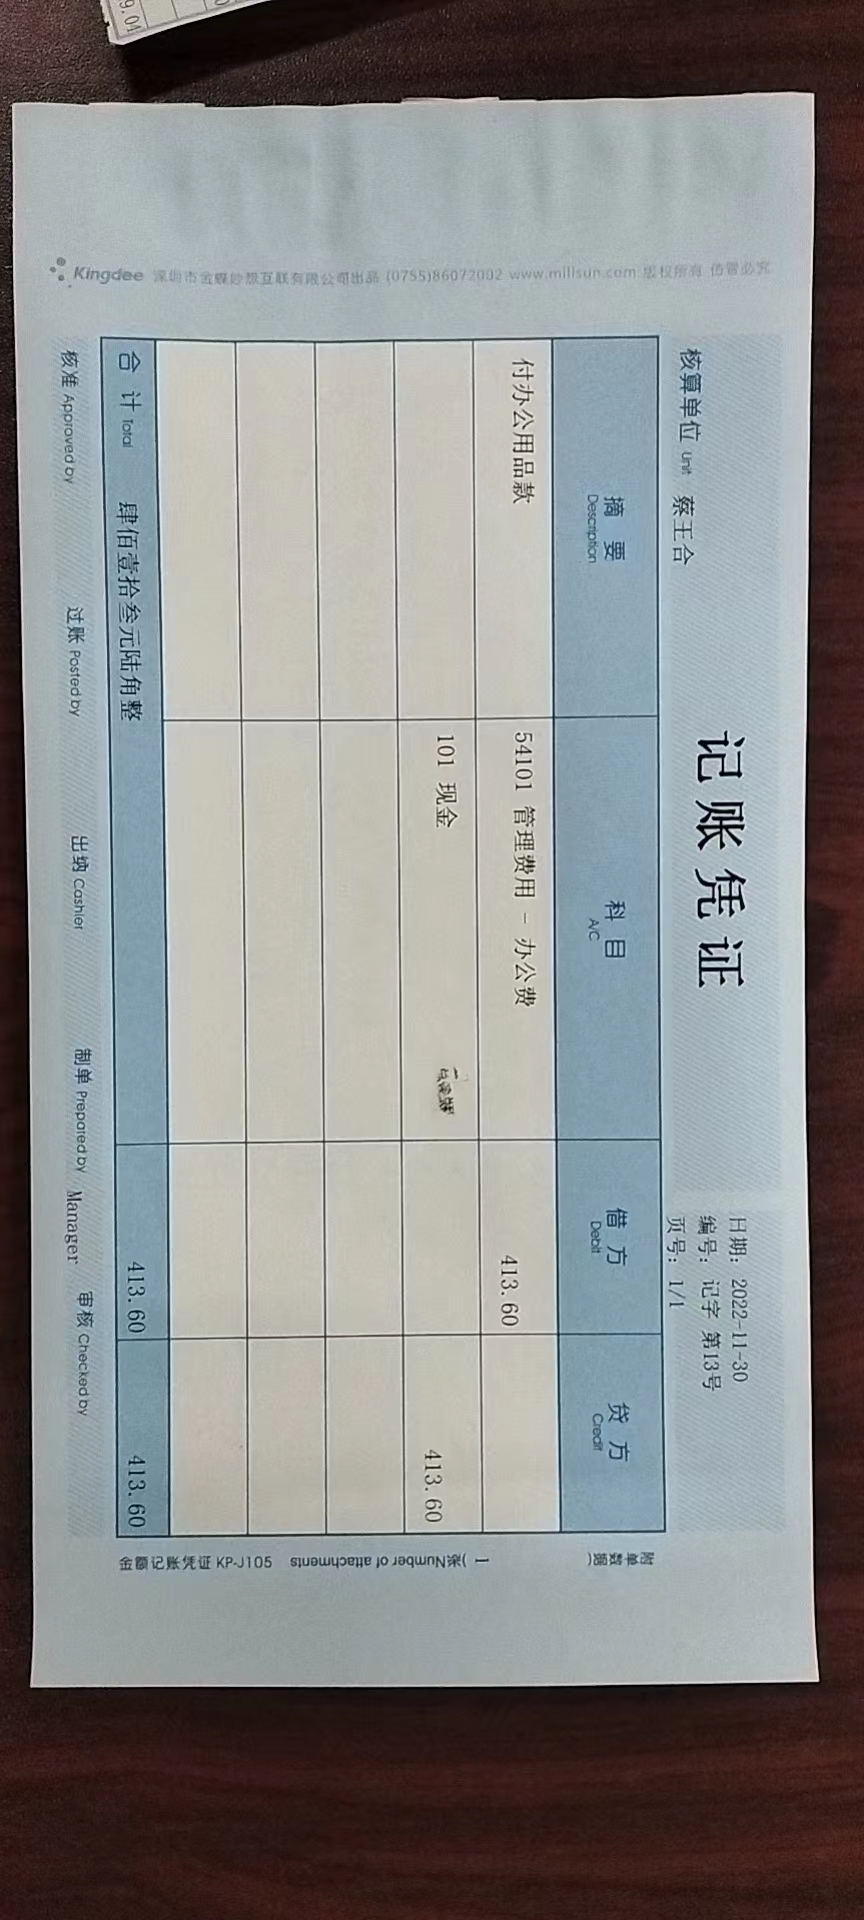 记账凭证
日期: 2022-11-30
编号: 记字 第13号
页号: 1/1
核算单位 Unit 蔡王合
摘要 Description 科目 A/C 借方 Debit 贷方 Credit
付办公用品款 54101 管理费用 - 办公费 413.60
101 现金 413.60
合计 Total 肆佰壹拾叁元陆角整 413.60 413.60
核准 Approved by 过账 Posted by 出纳 Cashier 制单 Prepared by Manager 审核 Checked by
附单数据( 1 )张 Number of attachments
金额记账凭证 KP-J105
Kingdee 深圳市金蝶妙想互联有限公司出品 (0755)86072002 www.millsun.com 版权所有 仿冒必究
9.04